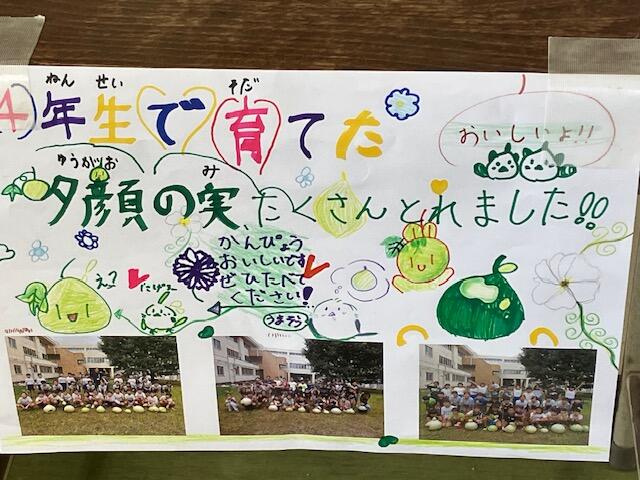 ねん せい そだ
4年生で育てた
おいしいよ!!
ゆうがお み
夕顔の実たくさんとれました!!
かんぴょう
おいしいです
ぜひたべて
ください!
えっ?
にげて
うまそう